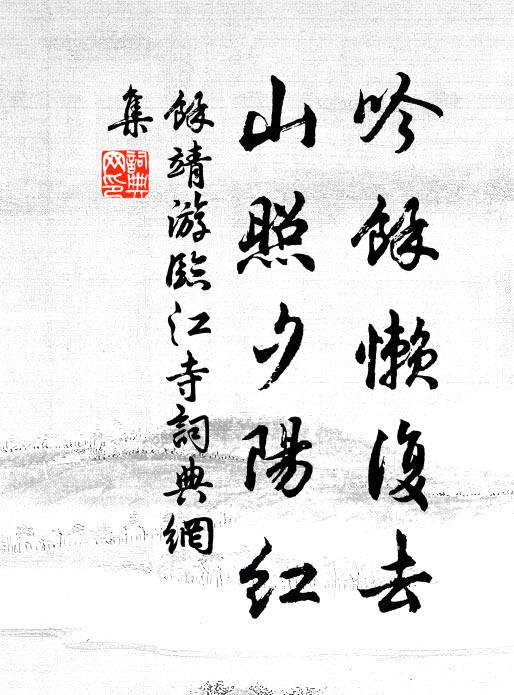 吟餘懶復去
山照夕陽紅
餘靖游臨江寺詞典網
集
詞典
网印